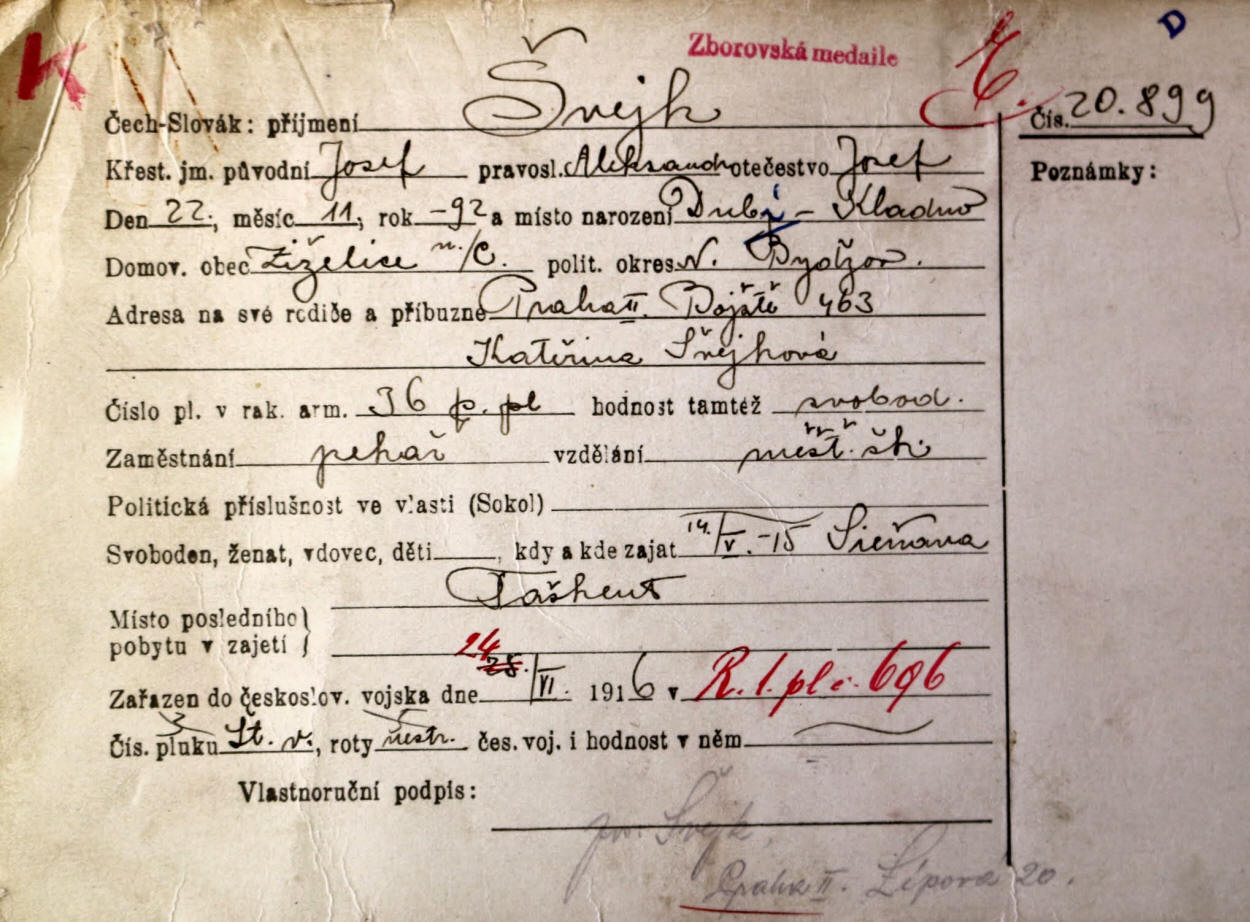 K
Zborovská medaile
D
Čech-Slovák: příjmení Švejk
Čís. 20.899
Křest. jm. původní Josef pravosl. Aleksandr otečestvo Josef
Poznámky:
Den 22., měsíc 11, rok -92 a místo narození Dubí - Kladno
Domov. obec Žiželice n./C. polit. okres N. Bydžov.
Adresa na své rodiče a příbuzné Praha II. Bojiště 463
Kateřina Švejková
Číslo pl. v rak. arm. 36 p. pl hodnost tamtéž svobod.
Zaměstnání pekař vzdělání měšť. šk.
Politická příslušnost ve vlasti (Sokol)
Svoboden, ženat, vdovec, děti , kdy a kde zajat 14./V. -15 Sieňava
Taškent
Místo posledního
pobytu v zajetí
24
Zařazen do českoslov. vojska dne 28./VI. 1916 v R. 1. pl. č. 696
Čís. pluku 3 St. v., roty nestr. čes. voj. i hodnost v něm
Vlastnoruční podpis:
Švejk
Praha II. Lípová 20.